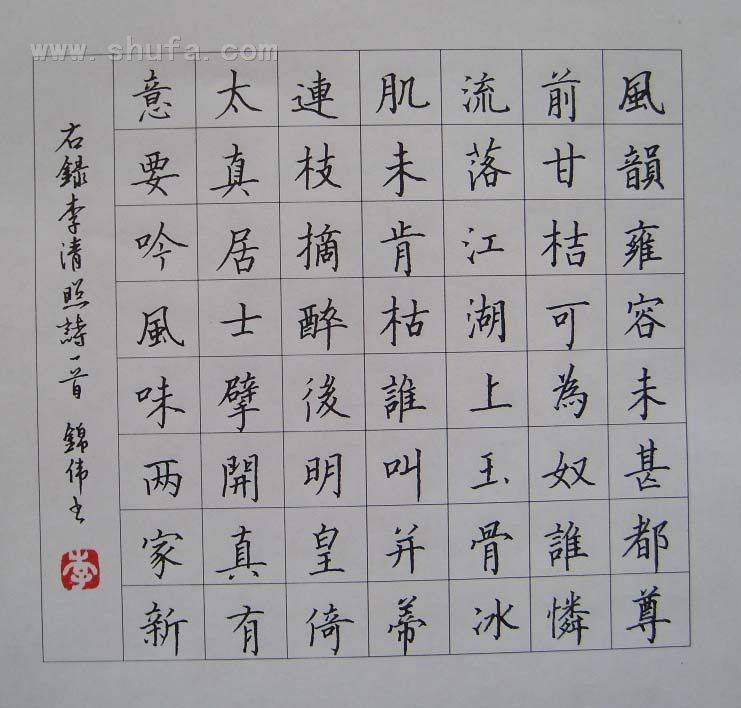 www.shufa.com
風韻雍容未甚都尊
前甘桔可為奴誰憐
流落江湖上玉骨冰
肌未肯枯誰叫并蒂
連枝摘醉後明皇倚
太真居士擘開真有
意要吟風味两家新
右録李清照詩一首 錦伟书
李